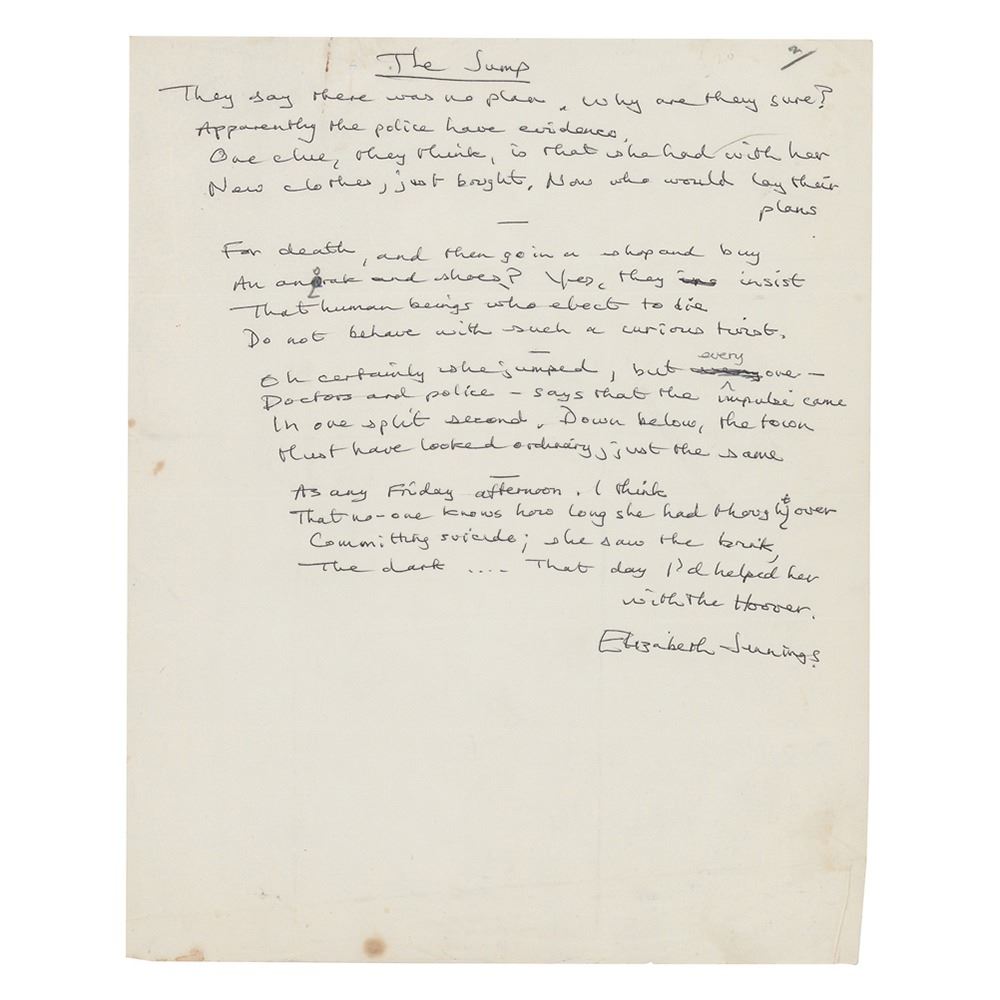 2
The Jump
They say there was no plan. Why are they sure?
Apparently the police have evidence.
One clue, they think, is that she had with her
New clothes, just bought. Now who would lay their
plans
For death, and then go in a shop and buy
An anorak and shoes? Yes, they insist
That human beings who elect to die
Do not behave with such a curious twist.
Oh certainly she jumped, but everyone –
Doctors and police – says that the impulse came
In one split second. Down below, the town
Must have looked ordinary, just the same
As any Friday afternoon. I think
That no-one knows how long she had thought over
Committing suicide; she saw the brink,
The dark .... That day I'd helped her
with the Hoover.
Elizabeth Jennings